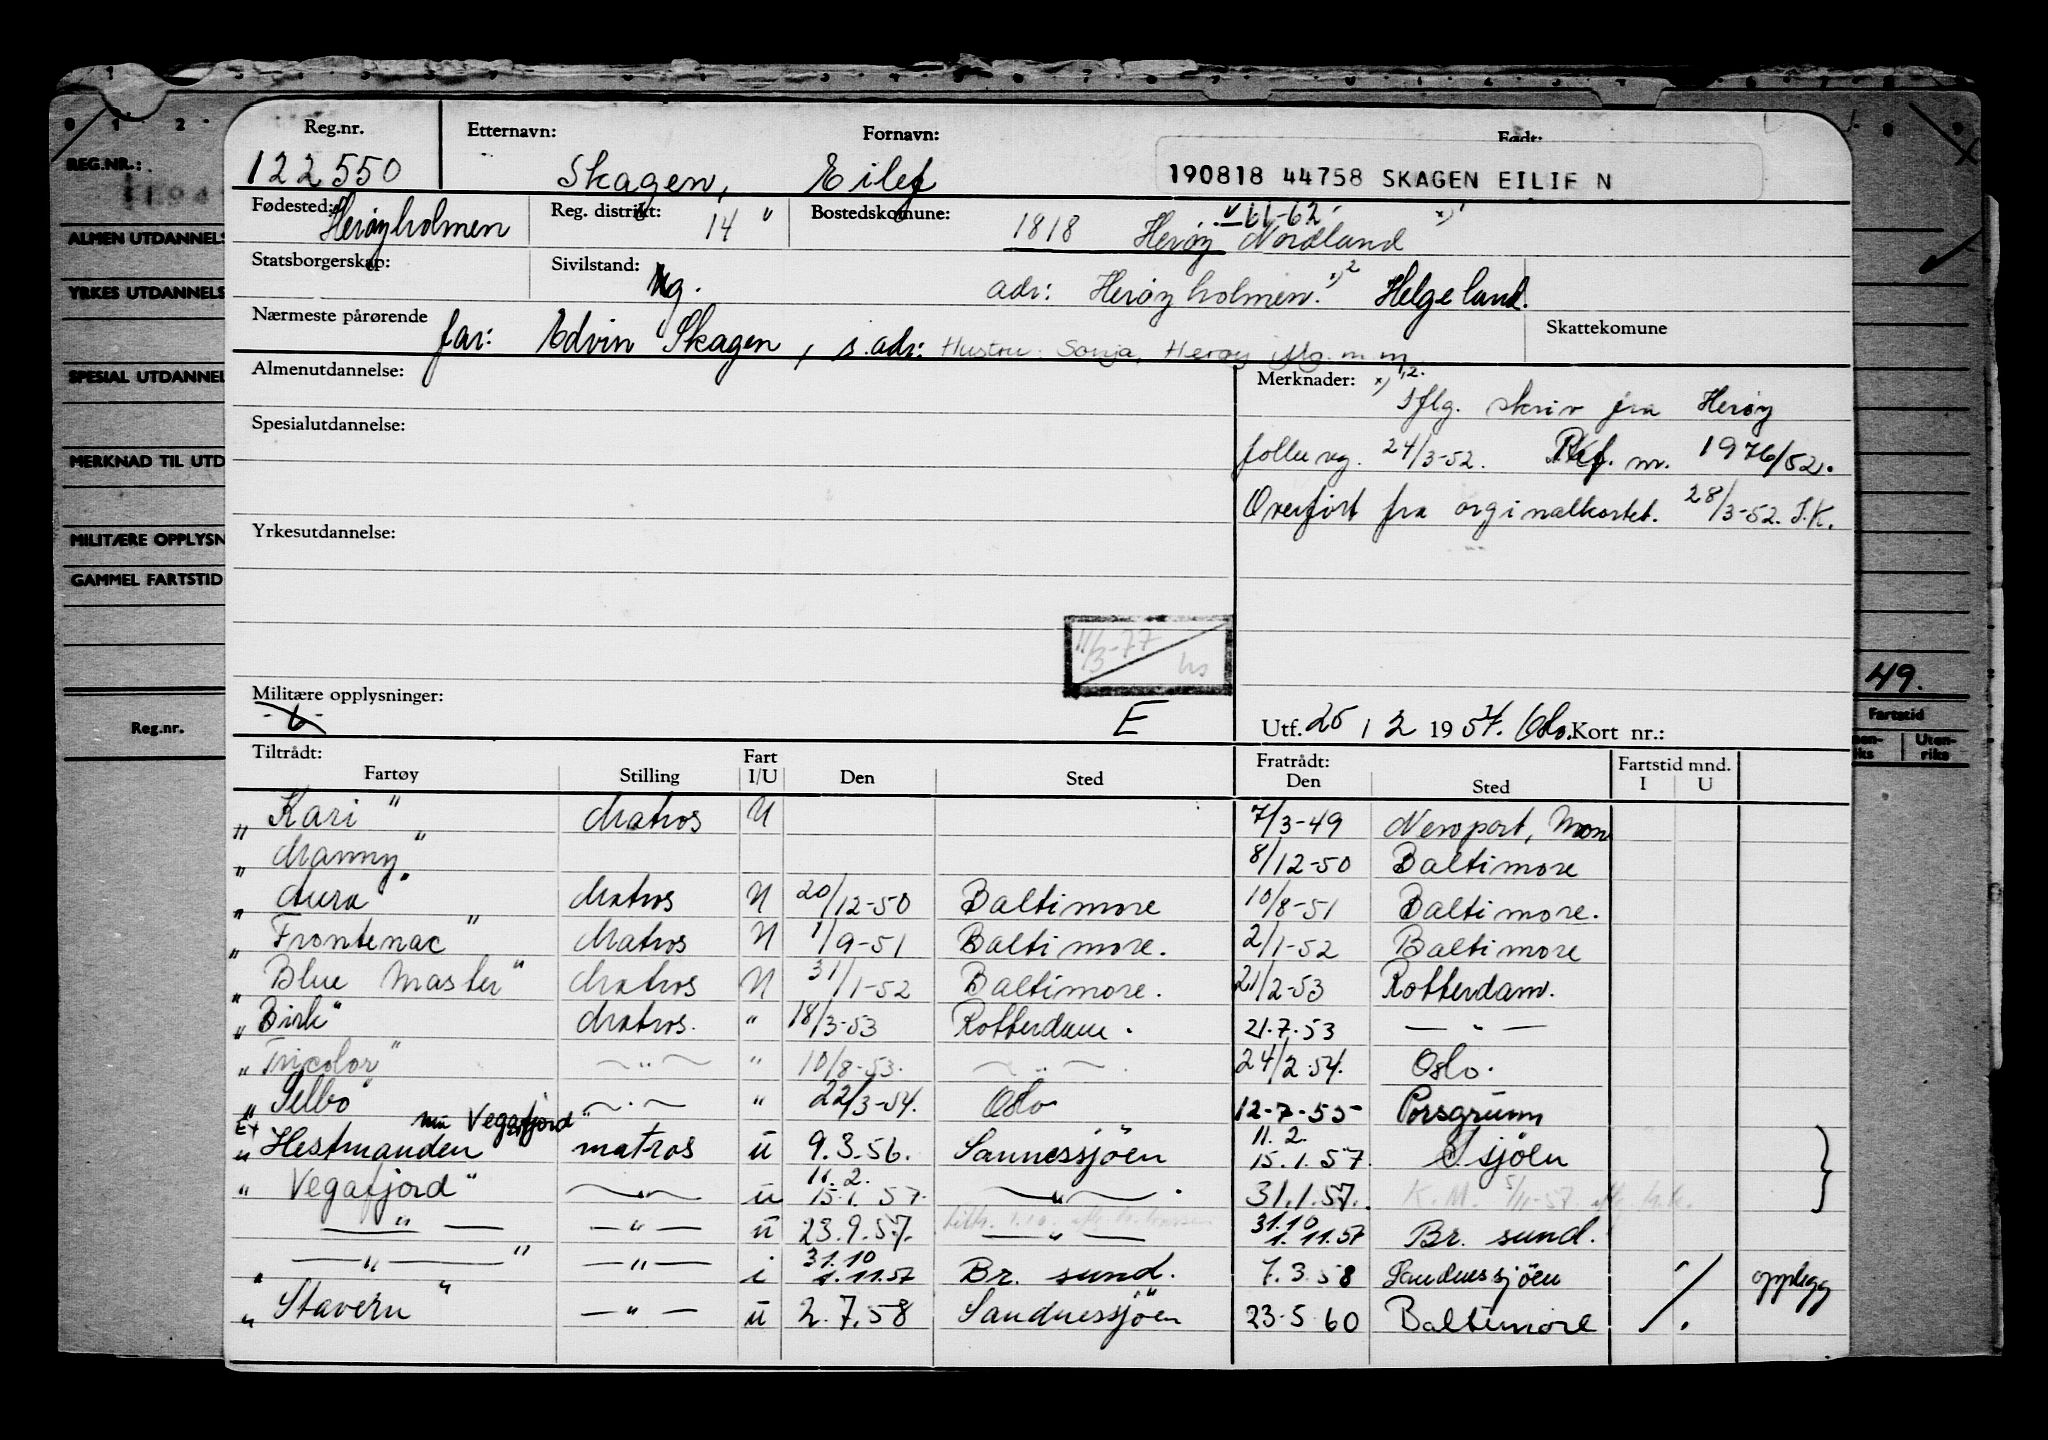 REG.NR.:
ALMEN UTDANNELS
YRKES UTDANNELS
SPESIAL UTDANNEL
MERKNAD TIL UTD
MILITÆRE OPPLYSN
GAMMEL FARTSTID
Reg.nr.
49.
Fartstid
Uten-
riks
Reg.nr. Etternavn: Fornavn: Født:
122550 Skagen, Eilef 190818 44758 SKAGEN EILIF N
Fødested: Herøyholmen Reg. distrikt: 14 " Bostedskomune: 1818 Herøy Nordland
61-62
Statsborgerskap: Sivilstand: Ug. adr: Herøyholmen. Helgeland.
Nærmeste pårørende far: Edvin Skagen, s. adr: Hustru Sonja, Herøy Skattekomune
Almenutdannelse: Merknader: x) 1,2.
Iflg. skriv fra Herøy
Spesialutdannelse:
follereg. 24/3-52. Rkf. nr. 1976/52.
Overført fra orginalkortet. 28/3-52. S.K.
Yrkesutdannelse:
11/3-77
hs
Militære opplysninger:
E Utf. 25 / 2 1954. Oslo. Kort nr.:
Tiltrådt: Fart Fratrådt: Fartstid mnd.
Fartøy Stilling I/U Den Sted Den Sted I U
"Kari" Matros U 7/3-49 Newport, Mon
"Manny" 8/12-50 Baltimore
"Aura" Matros U 20/12-50 Baltimore 10/8-51 Baltimore.
"Frontenac" Matros U 1/9-51 Baltimore. 2/1-52 Baltimore
"Blue Master" Matros U 31/1-52 Baltimore. 21/2-53 Rotterdam.
"Birk" Matros. " 18/3-53 Rotterdam. 21.7.53 — " —
"Tricolor" — " — " 10/8-53. — " — 24/2-54. Oslo.
"Selbo" — " — " 22/3-54. Oslo 12-7-55 Porsgrunn
Ex nu Vegafjord" 11. 2.
"Hestmanden matros u 9.3.56. Sannessjøen 15.1.57. S sjöen
11.2.
"Vegafjord" — " — u 15.1.57. — " — 31.1.57. K.M. 5/11-57.
31.10
— " — — " — u 23.9.57. — " — 1.11.57 Br. sund.
31.10
" — " — " — " — i 1.11.57 Br. sund. 7.3.58 Sandnessjöen opplegg
"Stavern" — " — u 2.7.58 Sandnessjöen 23.5.60 Baltimore